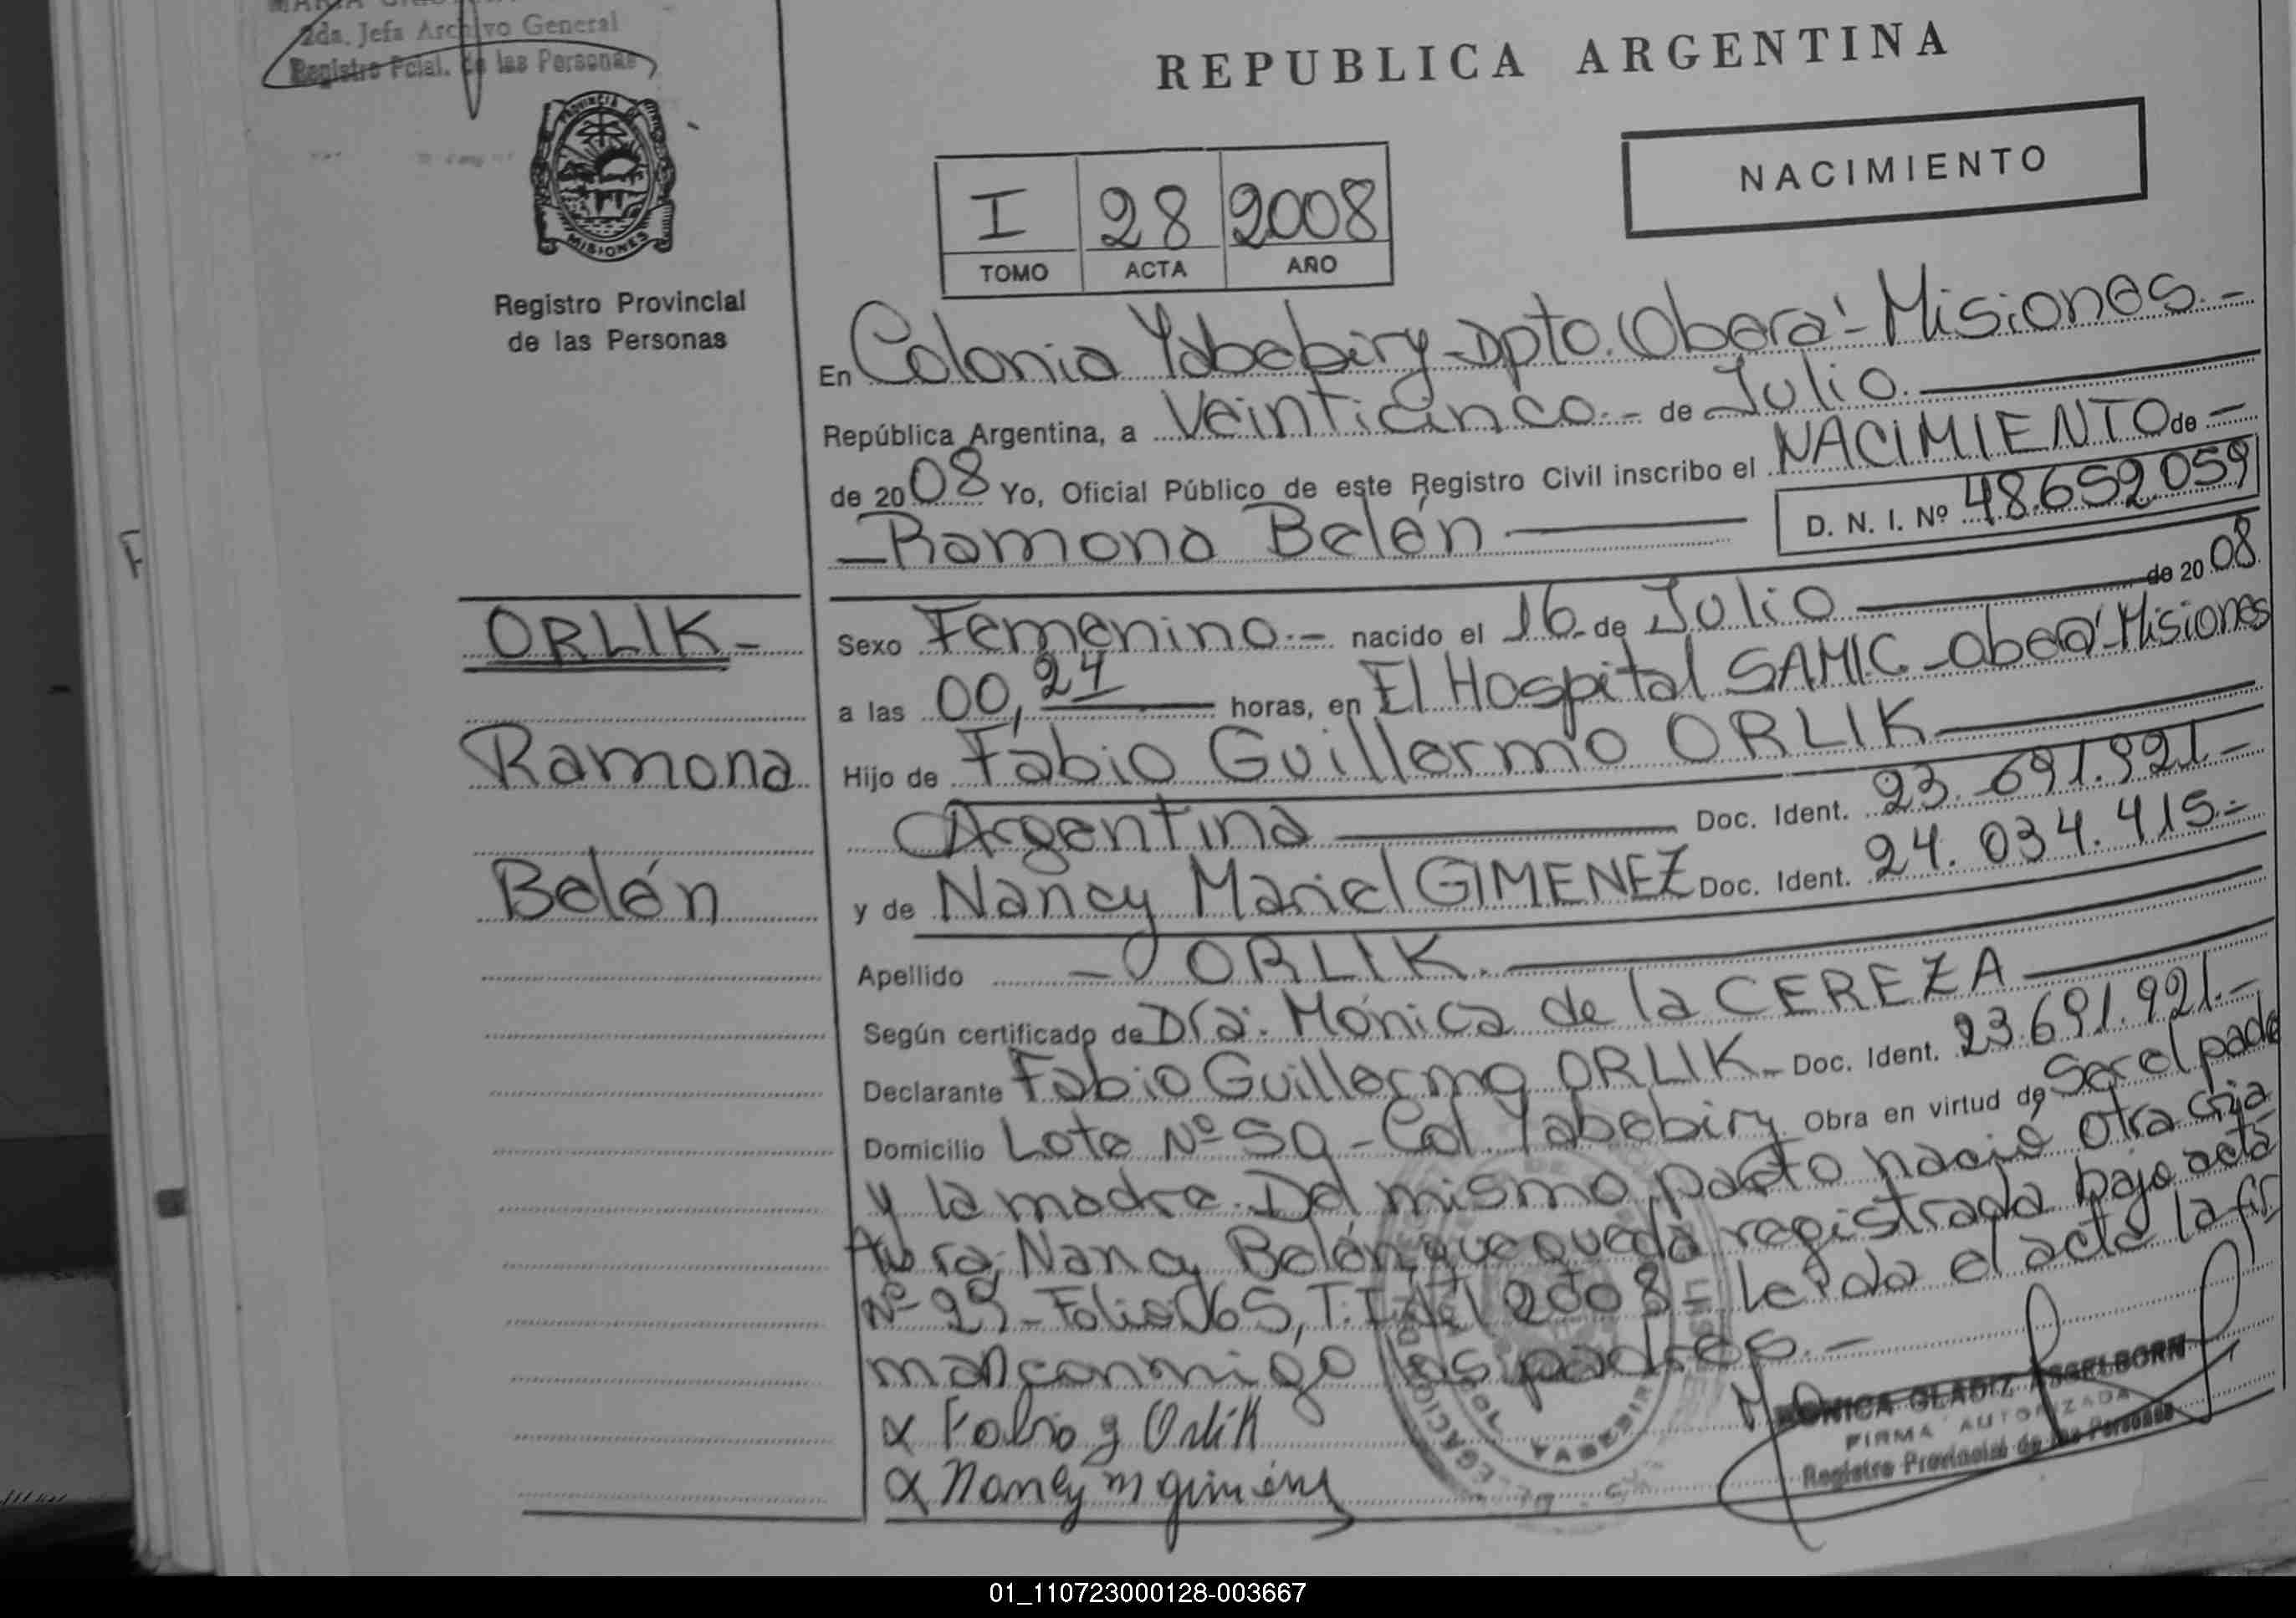 2da. Jefa Archivo General
Registro Pcial. de las Personas
PROVINCIA DE
MISIONES
Registro Provincial
de las Personas
REPUBLICA ARGENTINA
NACIMIENTO
I 28 2008
TOMO ACTA AÑO
En Colonia Yabebiry - Dpto. Oberá - Misiones. -
República Argentina, a Veinticinco. - de Julio.
de 2008 Yo, Oficial Público de este Registro Civil inscribo el NACIMIENTO de -
- Ramona Belén
D. N. I. Nº 48.652.059
ORLIK -
Ramona
Belén
Sexo Femenino. - nacido el 16 - de Julio de 2008
a las 00,24 horas, en El Hospital SAMIC - Oberá - Misiones
Hijo de Fabio Guillermo ORLIK
Argentina Doc. Ident. 23.691.921 -
y de Nancy Mariel GIMENEZ Doc. Ident. 24.034.415. -
Apellido - ORLIK.
Según certificado de Dra. Mónica de la CEREZA
Declarante Fabio Guillermo ORLIK - Doc. Ident. 23.691.921. -
Domicilio Lote Nº 59 - Col Yabebiry Obra en virtud de Ser el padre
y la madre. Del mismo parto nació otra cria
Nancy Belén, que queda registrada bajo acta
Nº 29 - Folio 065, T: I del 2008 - leída el acta la fir
man conmigo los padres. -
x Fabio g Orlik
x Nancy m gimenez
MONICA GLADIZ ASSELBORN
FIRMA AUTORIZADA
Registro Provincial de las Personas
YABEBIRY
01_110723000128-003667